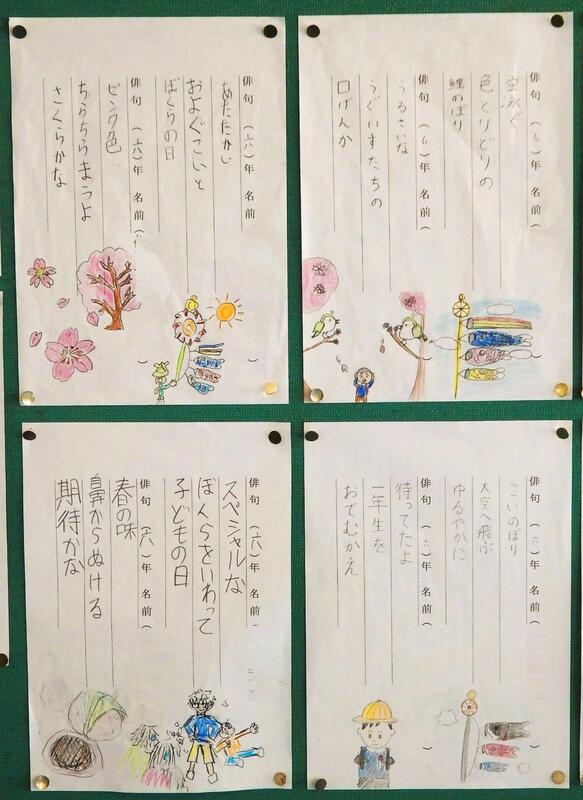 俳句（6）年 名前（
空泳ぐ
色とりどりの
鯉のぼり
俳句（6）年 名前（
うるさいな
うぐいすたちの
口げんか
俳句（六）年 名前（
あたたかい
およぐこいと
ぼくらの日
俳句（六）年 名前（
ピンク色
ちらちらまうよ
さくらかな
俳句（六）年 名前（
こいのぼり
大空へ飛ぶ
ゆるやかに
俳句（六）年 名前（
待ってたよ
一年生を
おでむかえ
俳句（六）年 名前（
スペシャルな
ぼくらをいわって
子どもの日
俳句（六）年 名前（
春の味
鼻からぬける
期待かな